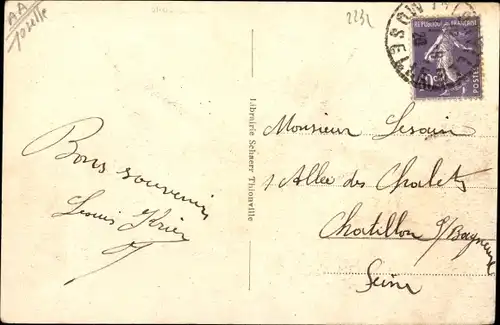 AA
Moselle
2232
THIONVILLE
MOSELLE
REPUBLIQUE FRANÇAISE
POSTES
Librairie Schaerr Thionville
Bons souvenirs
Louis Krier
Monsieur Lesain
1 Allée des Chalets
Chatillon s/Bagneux
Seine